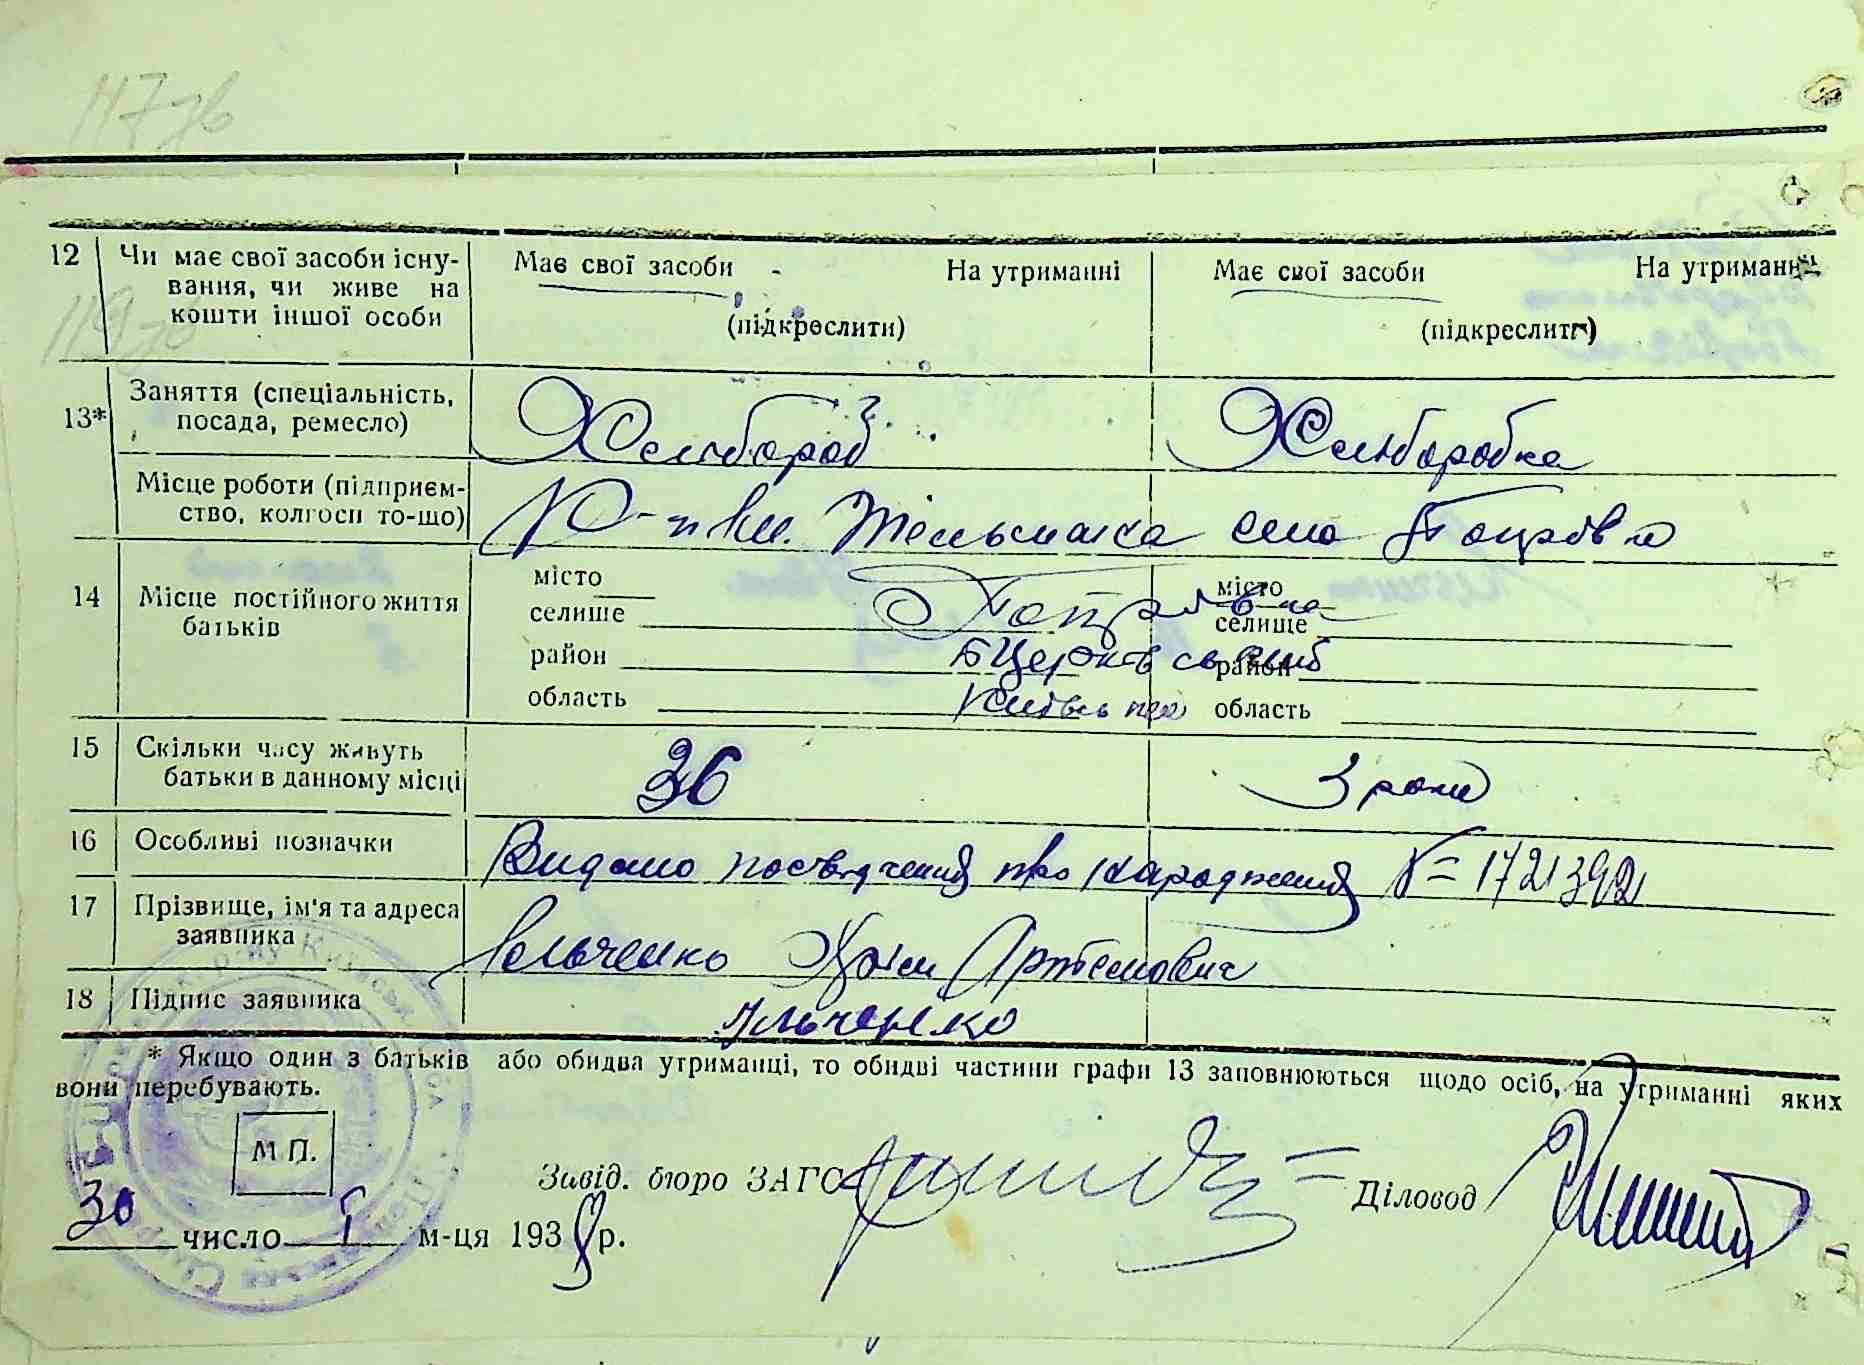 117 зв
12 Чи має свої засоби існу- Має свої засоби - На утриманні Має свої засоби На утриманні
вання, чи живе на
кошти іншої особи (підкреслити) (підкреслити)
13* Заняття (спеціальність, Хлібороб Хліборобка
посада, ремесло)
Місце роботи (підприєм- Тельмана село
ство, колгосп то-що)
14 Місце постійного життя місто місто
батьків селише селище
район БЦерківський район
область Київська область
15 Скільки часу живуть 36 3 роки
батьки в данному місці
16 Особливі позначки Видано посвідчення про народження № 1721392
17 Прізвище, ім'я та адреса
заявника Ільченко Артемович
18 Підпис заявника Ільченко
* Якщо один з батьків або обидва утриманці, то обидві частини графи 13 заповнюються щодо осіб, на утриманні яких
вони перебувають.
М П.
Завід. бюро ЗАГС Діловод
30 число I м-ця 193 р.